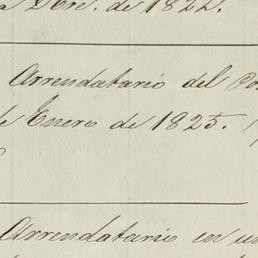 a Dbre. de 1822.
Arrendatario del Po
de Enero de 1825.
Arrendatario en un